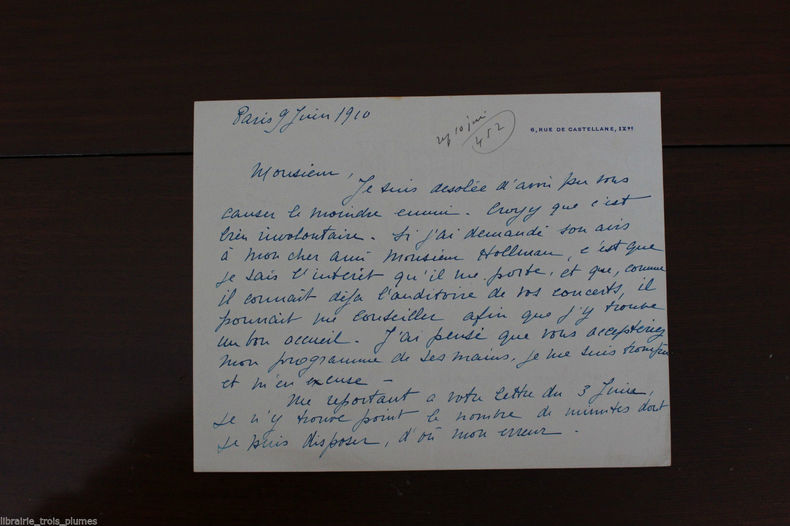 Paris 9 Juin 1910
rep 10 juin
452
6, RUE DE CASTELLANE, IXᵉ
Monsieur,
Je suis desolée d'avoir pu vous
causer le moindre ennui. Croyez que c'est
bien involontaire. Si j'ai demandé son avis
à mon cher ami Monsieur Hollman, c'est que
je sais l'intérêt qu'il me porte, et que, comme
il connait déja l'auditoire de vos concerts, il
pourrait me conseiller afin que j'y trouve
un bon accueil. J'ai pensé que vous accepteriez
mon programme de ses mains, je me suis trompée
et m'en excuse —
Me reportant a votre lettre du 3 Juin,
je n'y trouve point le nombre de minutes dont
je puis disposer, d'où mon erreur.
librairie_trois_plumes